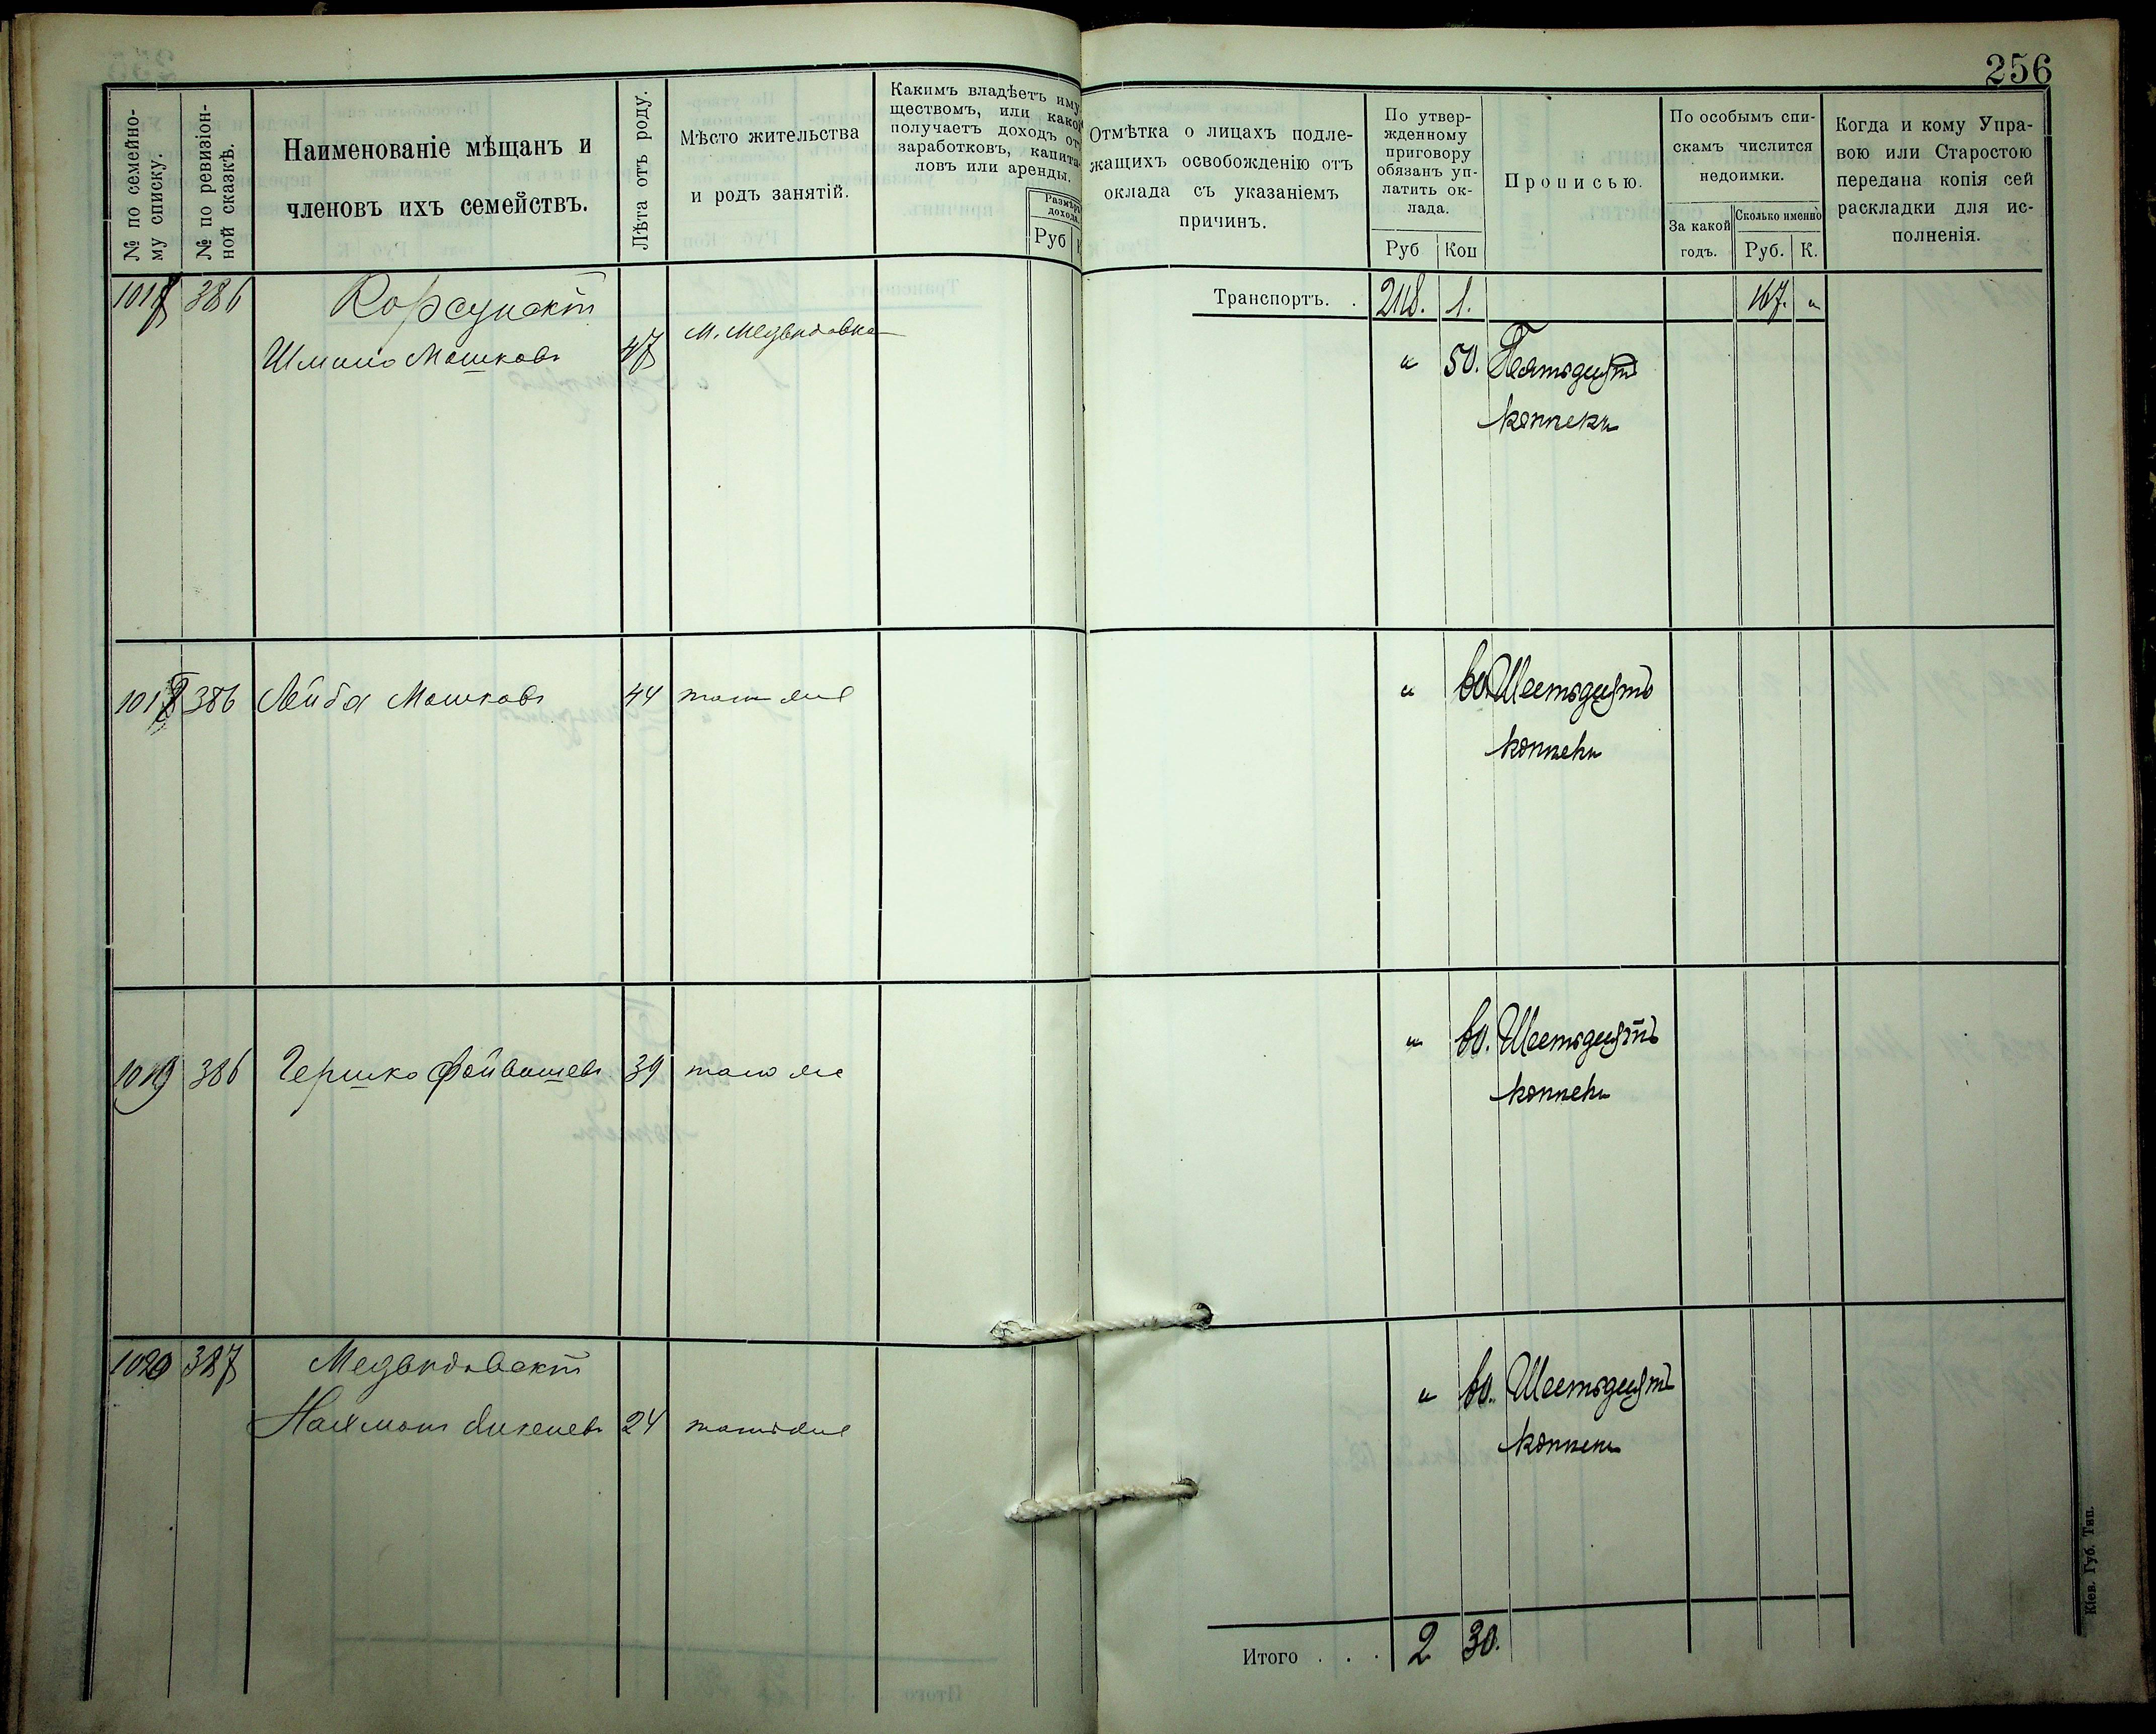 256
№ по семейно-
му списку.
№ по ревизіон-
ной сказкѣ.
Наименованіе мѣщанъ и
членовъ ихъ семействъ.
Лѣта отъ роду.
Мѣсто жительства
и родъ занятій.
Какимъ владѣетъ иму
ществомъ, или какой
получаетъ доходъ от
заработковъ, капита-
ловъ или аренды.
Размѣръ
дохода.
Руб
К
Отмѣтка о лицахъ подле-
жащихъ освобожденію отъ
оклада съ указаніемъ
причинъ.
По утвер-
жденному
приговору
обязанъ уп-
латить ок-
лада.
Руб Коп
Прописью.
По особымъ спи-
скамъ числится
недоимки.
За какой
годъ.
Сколько именно
Руб. К.
Когда и кому Упра-
вою или Старостою
передана копія сей
раскладки для ис-
полненія.
Транспортъ. . 218. 1. 167. "
386 Корсунскій
Шмило Мошковъ 47 м. Медвѣдовка " 50. Пятьдесятъ
копѣекъ
1018 386 Лейба Мошковъ 44 тамъ же " 60 Шестьдесятъ
копѣекъ
1019 386 Гершко Файвишевъ 39 тамъ же " 60. Шестьдесятъ
копѣекъ
1020 387 Медвѣдовскій
Нахманъ 24 тамъ же " 60. Шестьдесятъ
копѣекъ
Итого . . . 2 30.
Кіев. Губ. Тип.